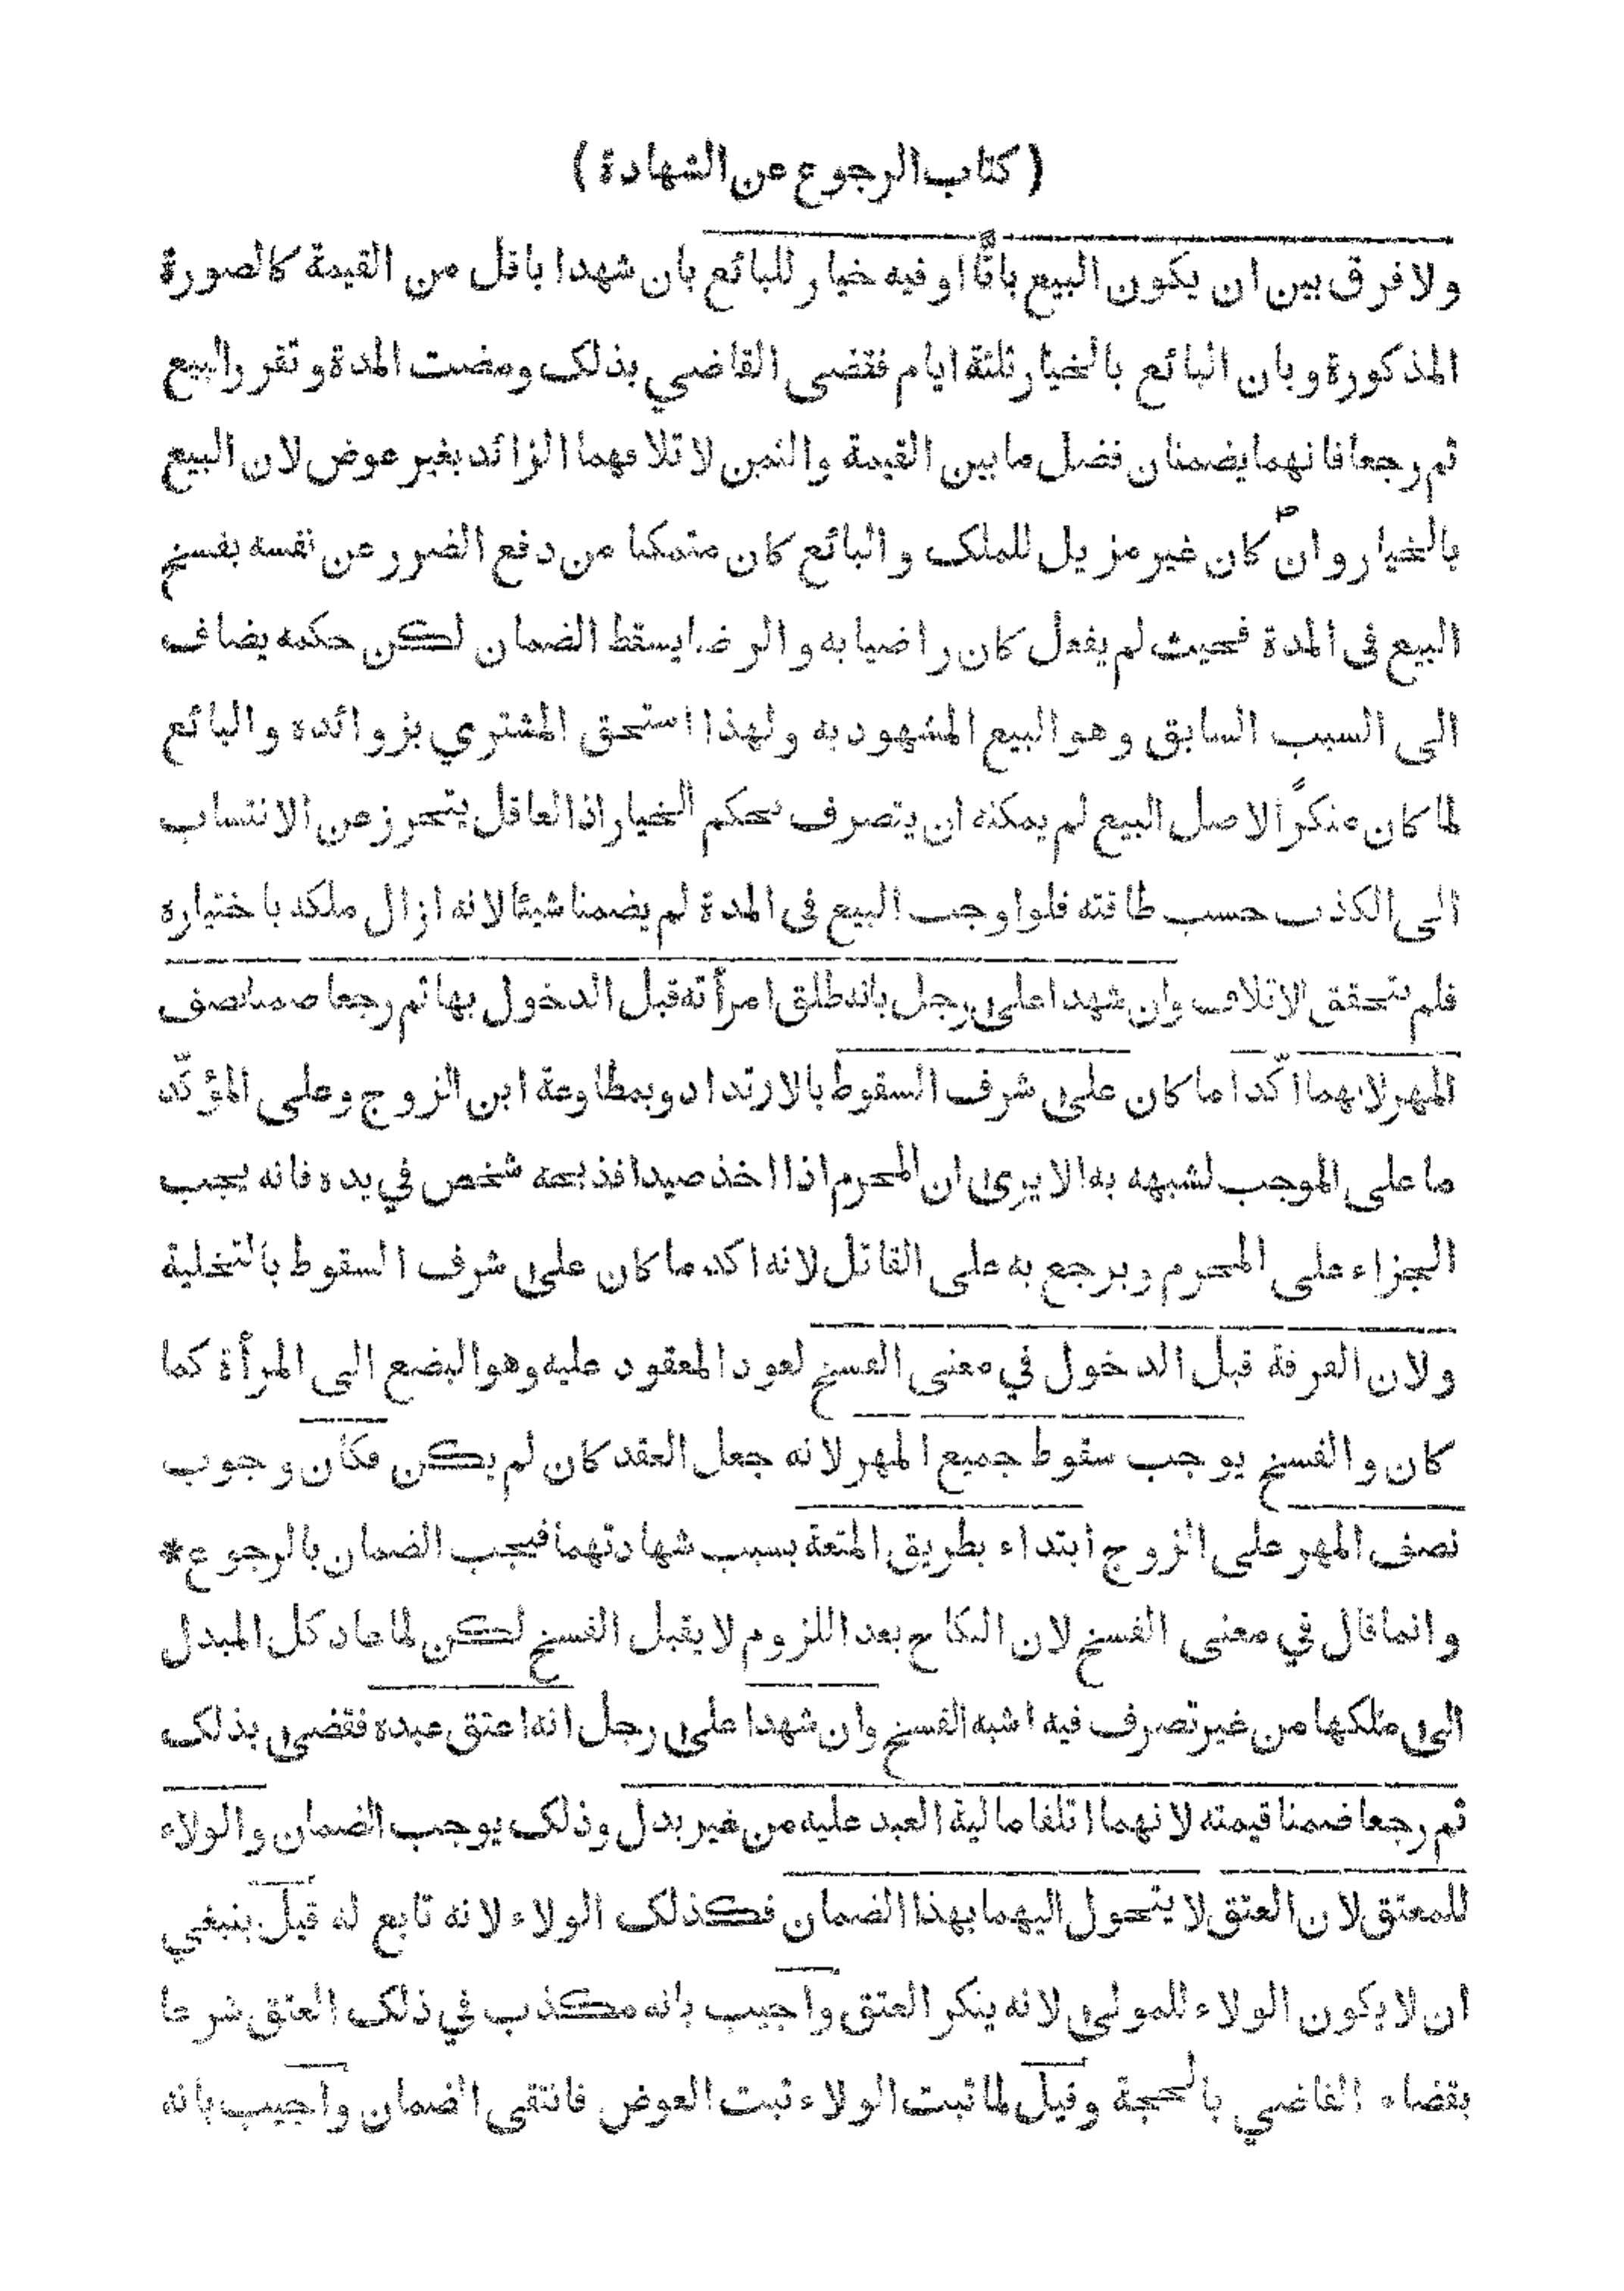 ( كتاب الرجوع عن الشهادة )
ولا فرق بين ان يكون البيع باتًّا او فيه خيار للبائع بان شهدا باقل من القيمة كالصورة
المذكورة وبان البائع بالخيار ثلثة ايام فقضى القاضي بذلك ومضت المدة وتقرر البيع
ثم رجعا فانهما يضمنان فضل ما بين القيمة والثمن لاتلافهما الزائد بغير عوض لان البيع
بالخيار وان كان غير مزيل للملك والبائع كان متمكنا من دفع الضرر عن نفسه بفسخ
البيع فى المدة فحيث لم يفعل كان راضيا به والرضا يسقط الضمان لكن حكمه يضاف
الى السبب السابق وهو البيع المشهود به ولهذا استحق المشتري بزوائده والبائع
لما كان منكرًا لاصل البيع لم يمكنه ان يتصرف بحكم الخيار اذ العاقل يتحرز عن الانتساب
الى الكذب حسب طاقته فلو اوجب البيع فى المدة لم يضمنا شيئا لانه ازال ملكه باختياره
فلم يتحقق الاتلاف وان شهدا على رجل بانه طلق امرأته قبل الدخول بها ثم رجعا ضمنا نصف
المهر لانهما اكّدا ما كان على شرف السقوط بالارتداد وبمطاوعة ابن الزوج وعلى المؤكّد
ما على الموجب لشبهه به الا يرى ان المحرم اذا اخذ صيدا فذبحه شخص في يده فانه يجب
الجزاء على المحرم ويرجع به على القاتل لانه اكد ما كان على شرف السقوط بالتخلية
ولان الفرقة قبل الدخول في معنى الفسخ لعود المعقود عليه وهو البضع الى المرأة كما
كان والفسخ يوجب سقوط جميع المهر لانه جعل العقد كان لم يكن فكان وجوب
نصف المهر على الزوج ابتداء بطريق المتعة بسبب شهادتهما فيجب الضمان بالرجوع *
وانما قال في معنى الفسخ لان النكاح بعد اللزوم لا يقبل الفسخ لكن لما عاد كل المبدل
الى ملكها من غير تصرف فيه اشبه الفسخ وان شهدا على رجل انه اعتق عبده فقضى بذلك
ثم رجعا ضمنا قيمته لانهما اتلفا مالية العبد عليه من غير بدل وذلك يوجب الضمان والولاء
للمعتق لان العتق لا يتحول اليهما بهذا الضمان فكذلك الولاء لانه تابع له قيل ينبغي
ان لا يكون الولاء للمولى لانه ينكر العتق واجيب بانه مكذب في ذلك العتق شرعا
بقضاء القاضي بالحجة وقيل لما ثبت الولاء ثبت العوض فانتفى الضمان واجيب بانه